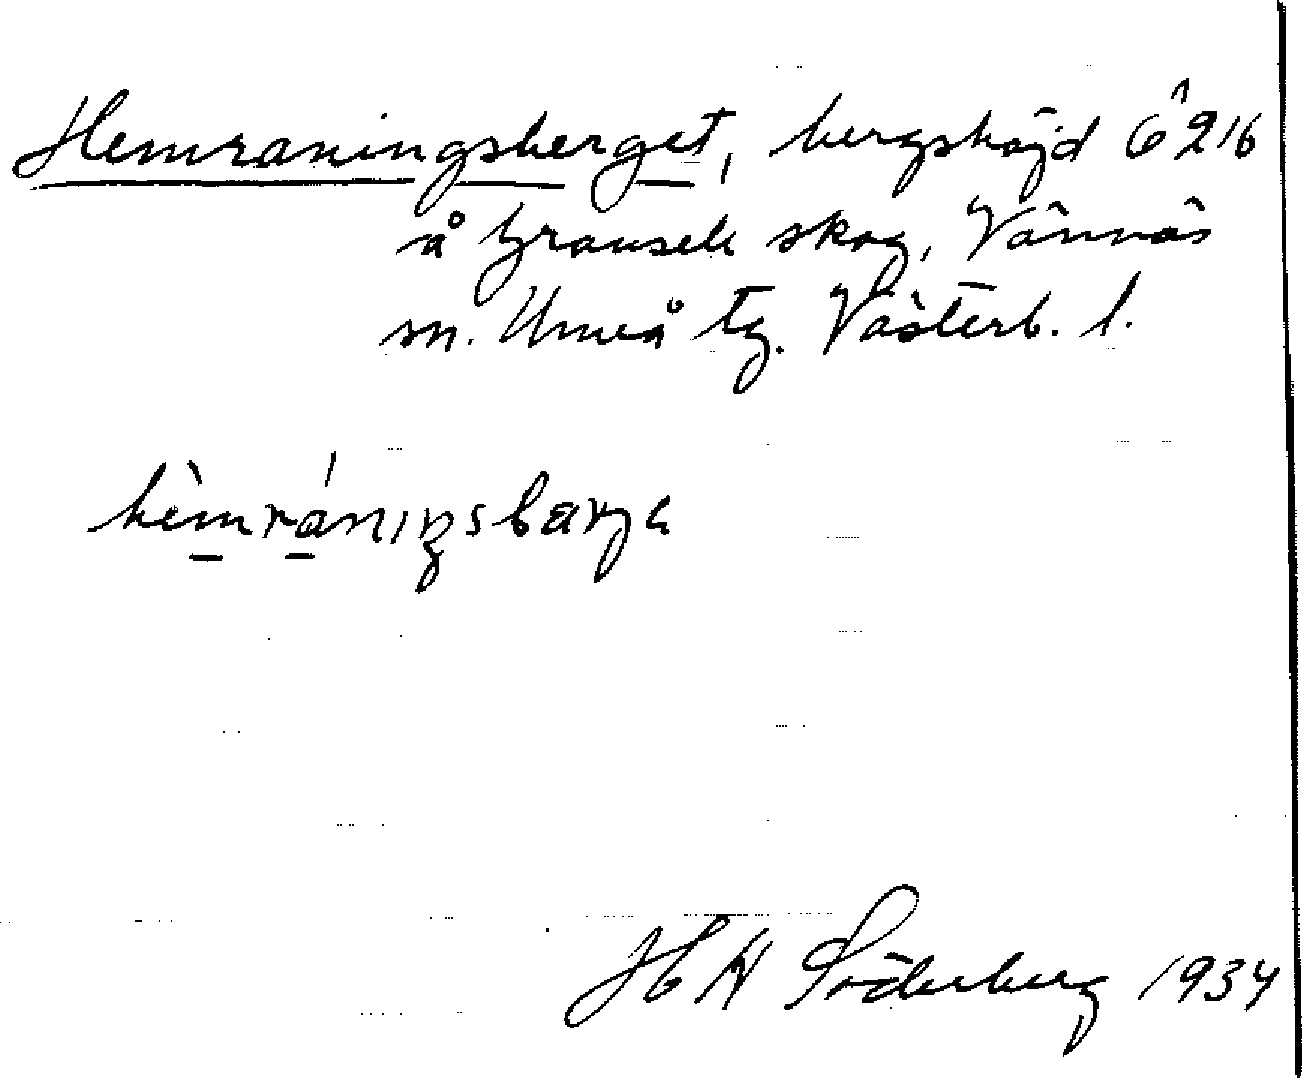 Hemraningsberget, bergshöjd 6^216
å Gransele skog, Vännäs
sn. Umeå tg. Västerb. l.
hèmránıŋsbärjə
H Söderberg 1934